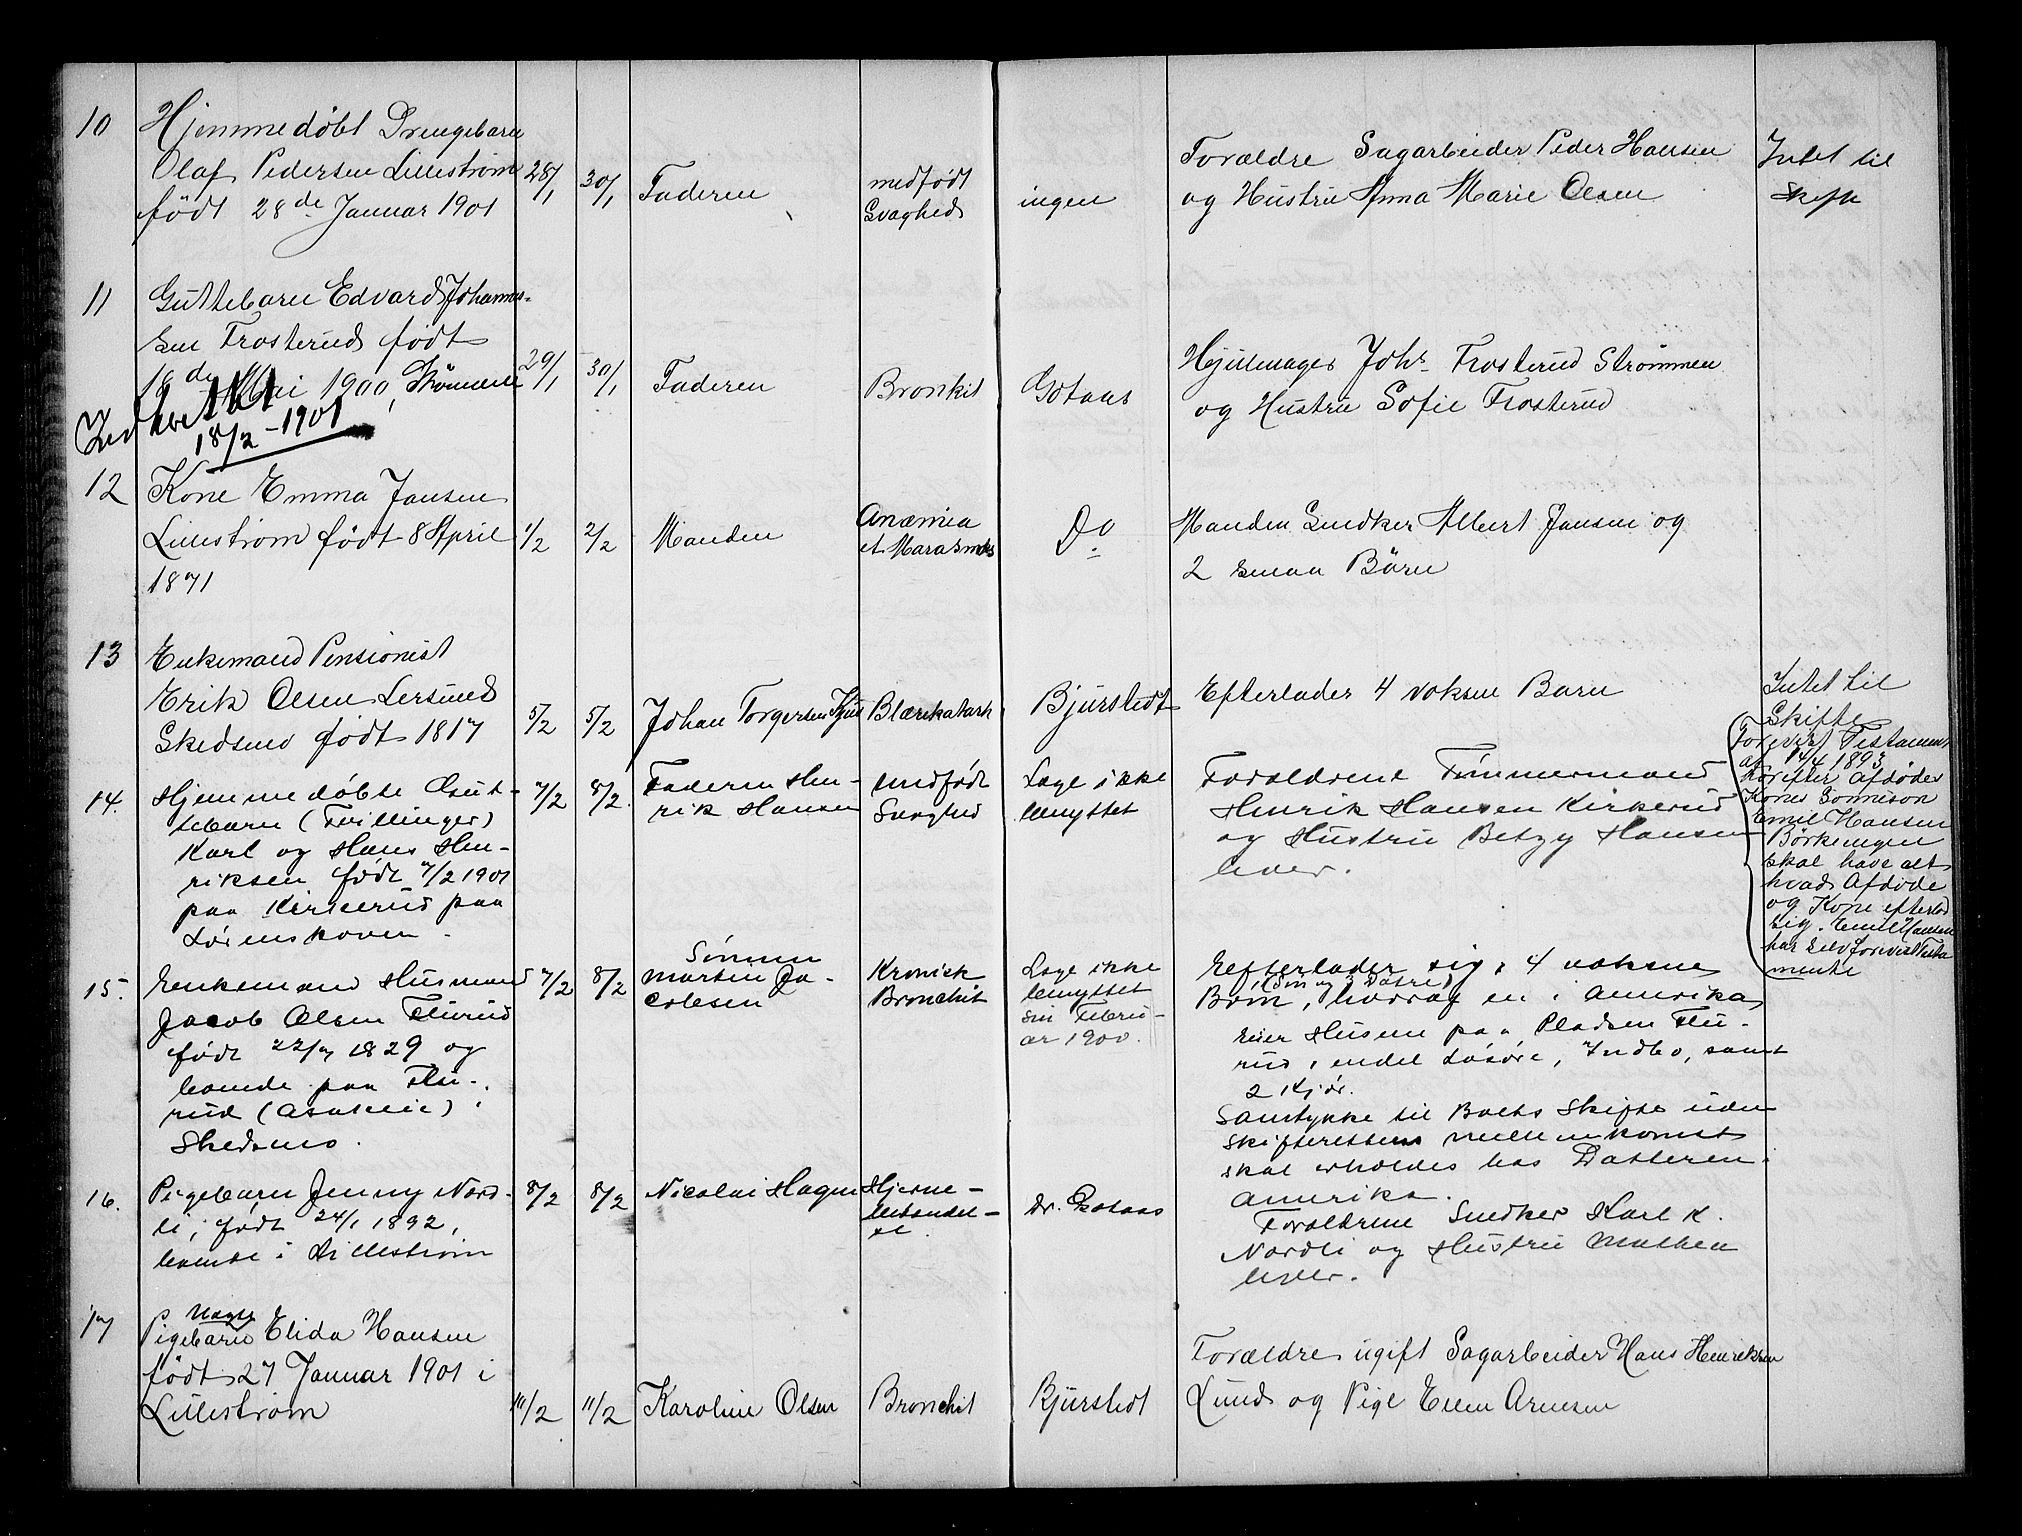 10
Hjemmedöbt Drengebarn
Olaf Pedersen Lilleström
födt 28de Januar 1901
28/1
30/1
Faderen
medfödt
Svaghed
ingen
Forældre Sagarbeider Peder Hansen
og Hustru Anna Marie Olsen
Intet til
Skifte
11
Guttebarn Edvard Johannes-
sen Frosterud födt
18de Mai 1900, Strömmen
29/1
30/1
Faderen
Bronkit
Gotaas
Hjulmager Johs. Frosterud Strømmen
og Hustru Sofie Frosterud
Indberettet
18/2-1901
12
Kone Emma Jansen
Lilleström födt 8 April
1871
1/2
2/2
Manden
Anæmia
et Marasmus
Do
Manden Snedker Albert Jansen og
2 smaa Börn
13
Enkemand Pensionist
Erik Olsen Lersund
Skedsmo födt 1817
5/2
5/2
Johan Torgersen Kjus
Blærekatarh
Bjurstedt
Efterlader 4 voksne Barn
Intet til
Skifte
Forevist Testament
af 14/4 1893
hvorefter afdødes
Kones Sønnesøn
Emil Hansen
Børkeengen
skal have alt
hvad Afdøde
og Kone efterlod
sig. Emil Hansen
har selv forevist Testa
mente
14.
Hjemmedöbte Gut-
tebarn (Tvillinger)
Karl og Hans Hen-
riksen födt 7/2 1901
paa Kirkerud paa
Lörenskoven.
7/2
8/2.
Faderen Hen-
rik Hansen
medfödt
Svaghed
Læge ikke
benyttet
Forældrene Tømmermand
Henrik Hansen Kirkerud
og Hustru Betzy Hansen
lever.
15.
Enkemand Husmand
Jacob Olsen Flurud
födt 22/7 1829 og
boende paa Flu-
rud (Asakeie) i
Skedsmo.
7/2
8/2
Sønnen
Martin Ja-
cobsen
Kronisk
Bronchit
Læge ikke
benyttet
sn Febru-
ar 1900.
Efterlader sig 4 voksne
(1 Søn og 3 Døtre)
Børn, hvoraf en i Amerika,
eier Husene paa Pladsen Flu-
rud, endel Løsøre, Indbo, samt
2 Kjör.
Samtykke til Boets Skifte uden
Skifterettens mellemkomst
skal erholdes hos Datteren i
Amerika.
16.
Pigebarn Jenny Nord-
li, födt 24/1 1892,
boende i Lilleström
8/2
8/2
Nicolai Hagen
Hjerne-
betændel-
se.
Dr. Gotaas
Forældrene Snedker Karl K.
Nordli og Hustru Mathea
lever.
17
Uægte
Pigebarn Elida Hansen
födt 27 Januar 1901 i
Lilleström
11/2
11/2
Karoline Olsen
Bronchit
Bjurstedt
Forældre ugift Sagarbeider Hans Henriksen
Lund og Pige Ellen Arnesen